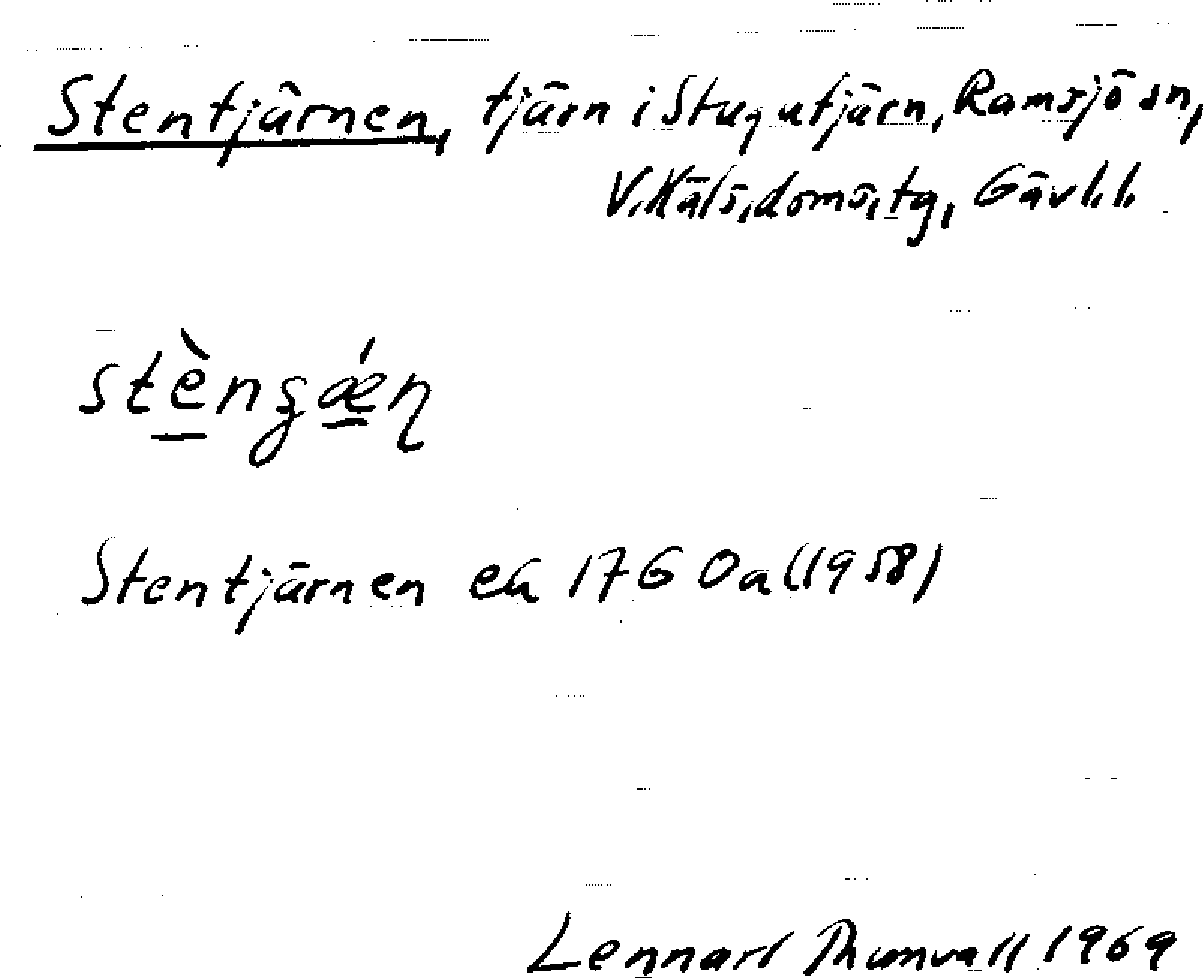 Stentjärnen, tjärn i Stugutjärn, Ramsjö sn,
V. Häls. doms. tg, Gävl. l.
stèngǽn
Stentjärnen ek 1760a (1958)
Lennart Thunvall 1969